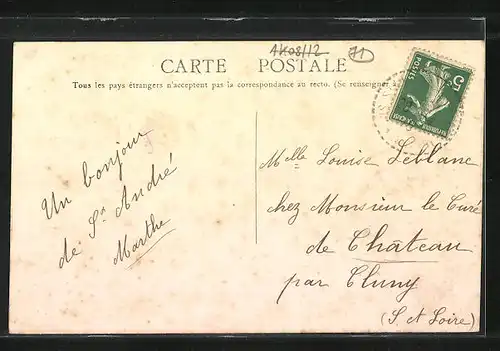 1408/12 71
CARTE POSTALE
Tous les pays étrangers n'acceptent pas la correspondance au recto. (Se renseigner à
POSTES
5
Un bonjour
de St André
Marthe
Melle Louise Leblanc
chez Monsieur le Curé
de Château
par Cluny
(S. et Loire)